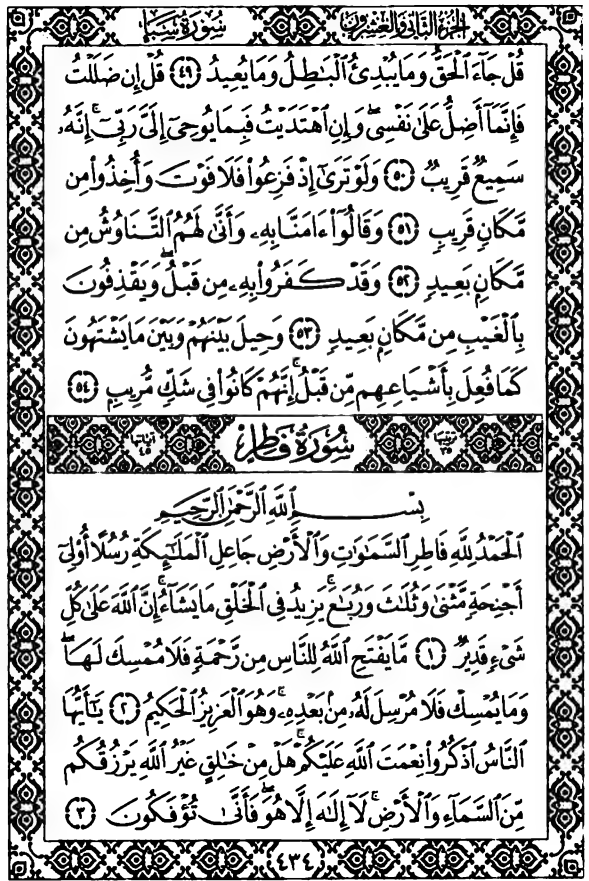 الجزء الثاني والعشرون
سورة سبإ
قُلۡ جَآءَ ٱلۡحَقُّ وَمَا يُبۡدِئُ ٱلۡبَٰطِلُ وَمَا يُعِيدُ ٤٩ قُلۡ إِن ضَلَلۡتُ
فَإِنَّمَآ أَضِلُّ عَلَىٰ نَفۡسِيۖ وَإِنِ ٱهۡتَدَيۡتُ فَبِمَا يُوحِيٓ إِلَيَّ رَبِّيٓۚ إِنَّهُۥ
سَمِيعٞ قَرِيبٞ ٥٠ وَلَوۡ تَرَىٰٓ إِذۡ فَزِعُواْ فَلَا فَوۡتَ وَأُخِذُواْ مِن
مَّكَانٖ قَرِيبٖ ٥١ وَقَالُوٓاْ ءَامَنَّا بِهِۦ وَأَنَّىٰ لَهُمُ ٱلتَّنَاوُشُ مِن
مَّكَانِۭ بَعِيدٖ ٥٢ وَقَدۡ كَفَرُواْ بِهِۦ مِن قَبۡلُۖ وَيَقۡذِفُونَ
بِٱلۡغَيۡبِ مِن مَّكَانِۭ بَعِيدٖ ٥٣ وَحِيلَ بَيۡنَهُمۡ وَبَيۡنَ مَا يَشۡتَهُونَ
كَمَا فُعِلَ بِأَشۡيَاعِهِم مِّن قَبۡلُۚ إِنَّهُمۡ كَانُواْ فِي شَكّٖ مُّرِيبِۭ ٥٤
ترتيبها ٣٥
سورة فاطر
آياتها ٤٥
بِسۡمِ ٱللَّهِ ٱلرَّحۡمَٰنِ ٱلرَّحِيمِ
ٱلۡحَمۡدُ لِلَّهِ فَاطِرِ ٱلسَّمَٰوَٰتِ وَٱلۡأَرۡضِ جَاعِلِ ٱلۡمَلَٰٓئِكَةِ رُسُلًا أُوْلِيٓ
أَجۡنِحَةٖ مَّثۡنَىٰ وَثُلَٰثَ وَرُبَٰعَۚ يَزِيدُ فِي ٱلۡخَلۡقِ مَا يَشَآءُۚ إِنَّ ٱللَّهَ عَلَىٰ كُلِّ
شَيۡءٖ قَدِيرٞ ١ مَّا يَفۡتَحِ ٱللَّهُ لِلنَّاسِ مِن رَّحۡمَةٖ فَلَا مُمۡسِكَ لَهَاۖ
وَمَا يُمۡسِكۡ فَلَا مُرۡسِلَ لَهُۥ مِنۢ بَعۡدِهِۦۚ وَهُوَ ٱلۡعَزِيزُ ٱلۡحَكِيمُ ٢ يَٰٓأَيُّهَا
ٱلنَّاسُ ٱذۡكُرُواْ نِعۡمَتَ ٱللَّهِ عَلَيۡكُمۡۚ هَلۡ مِنۡ خَٰلِقٍ غَيۡرُ ٱللَّهِ يَرۡزُقُكُم
مِّنَ ٱلسَّمَآءِ وَٱلۡأَرۡضِۚ لَآ إِلَٰهَ إِلَّا هُوَۖ فَأَنَّىٰ تُؤۡفَكُونَ ٣
٤٣٤